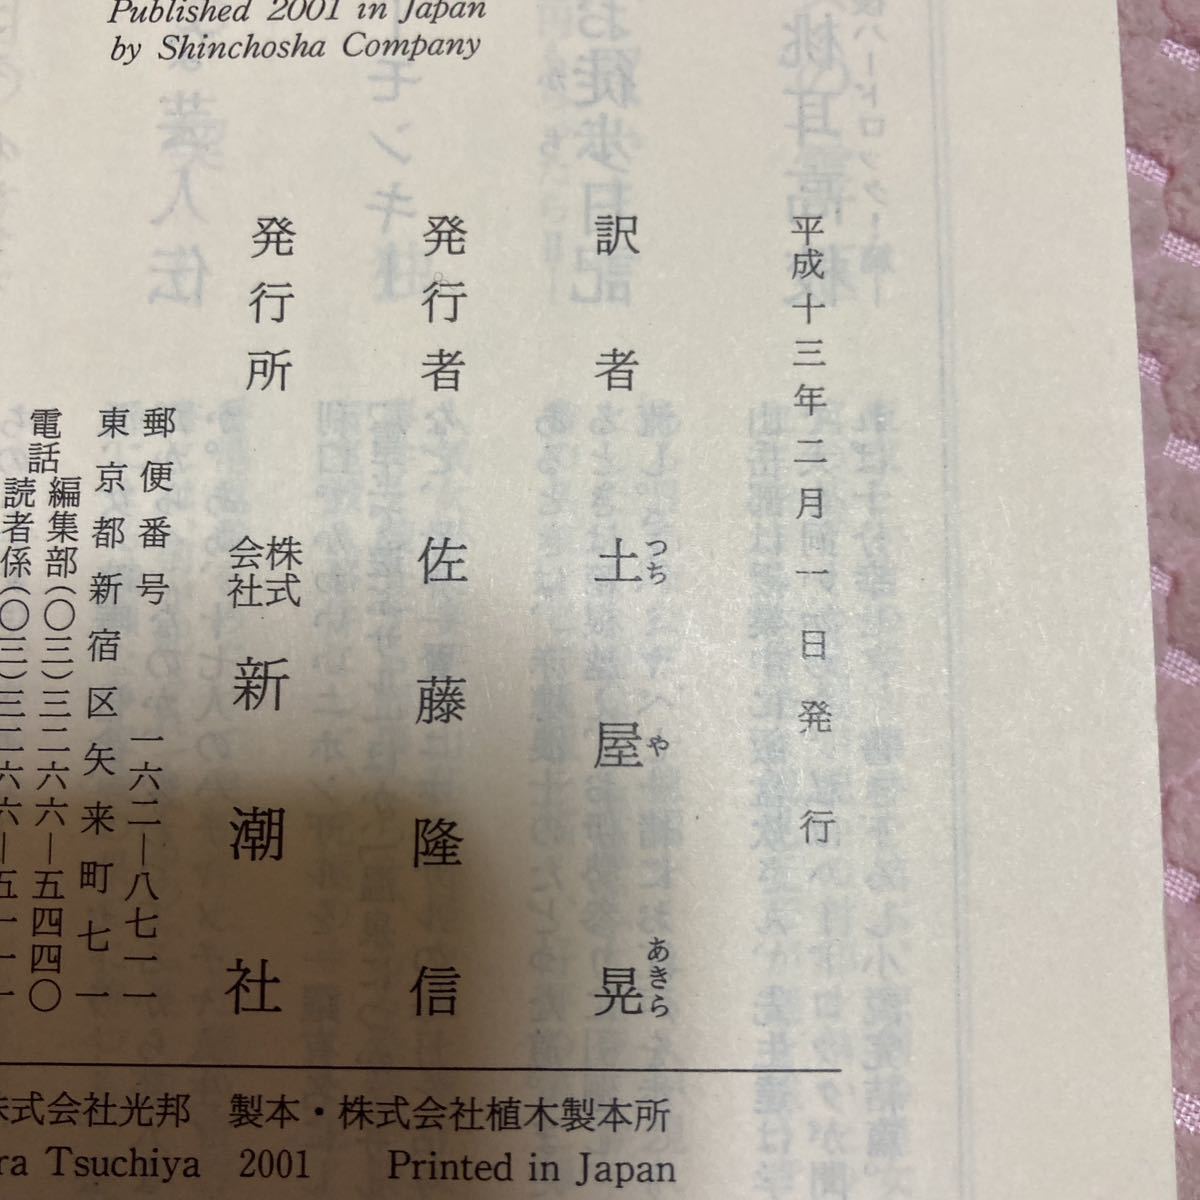 Published 2001 in Japan
by Shinchosha Company
平成十三年二月一日発行
訳者 土屋晃
つちやあきら
発行者 佐藤隆信
発行所 株式会社 新潮社
郵便番号 一六二―八七一一
東京都新宿区矢来町七一
電話 編集部(〇三)三二六六―五四四〇
読者係(〇三)三二六六―五一一一
株式会社光邦 製本・株式会社植木製本所
ra Tsuchiya 2001 Printed in Japan